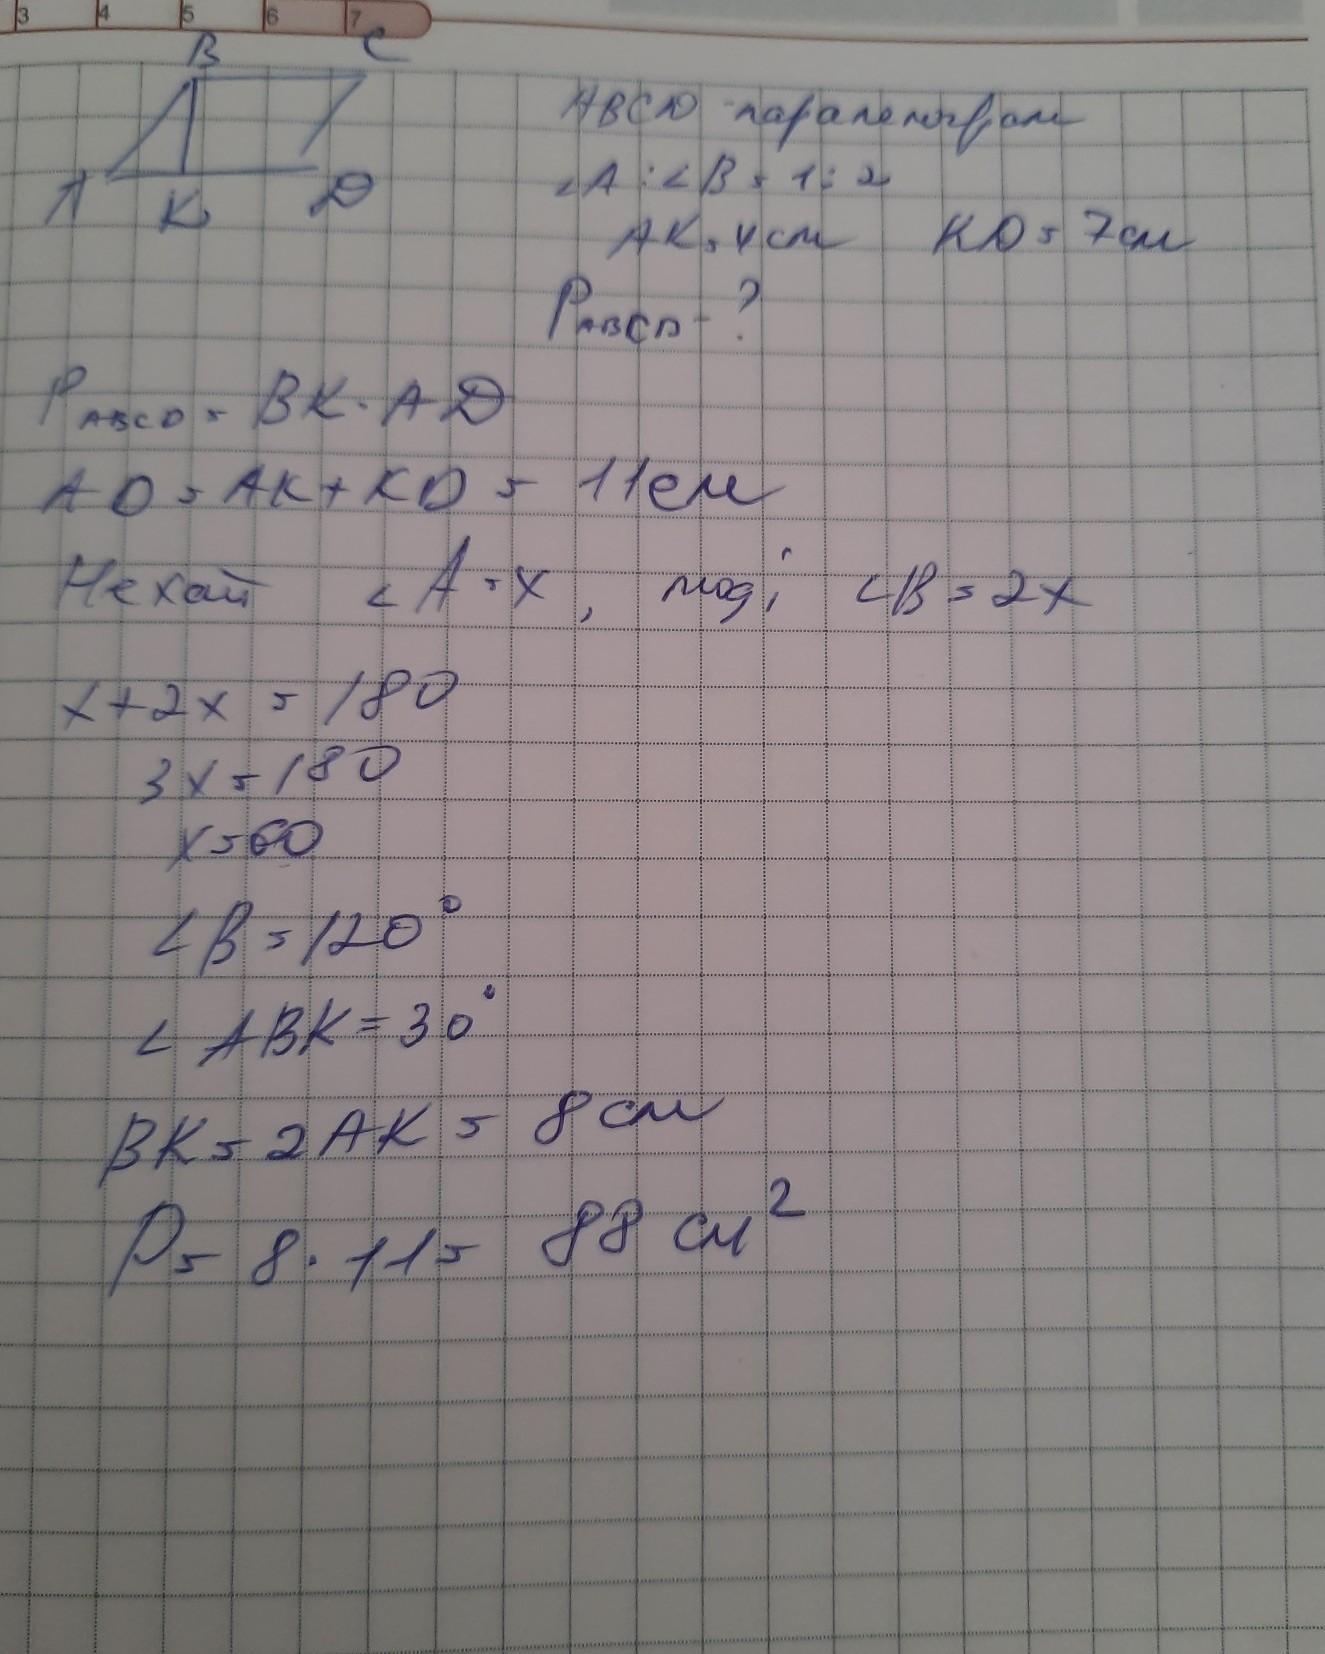 3 4 5 6 7
B C
A K D
ABCD - паралелограм
∠A : ∠B = 1 : 2
AK = 4 см KD = 7 см
PABCD - ?
PABCD = BK · AD
AD = AK + KD = 11 см
Нехай ∠A = x, тоді ∠B = 2x
x + 2x = 180
3x = 180
x = 60
∠B = 120°
∠ABK = 30°
BK = 2AK = 8 см
P = 8 · 11 = 88 см²